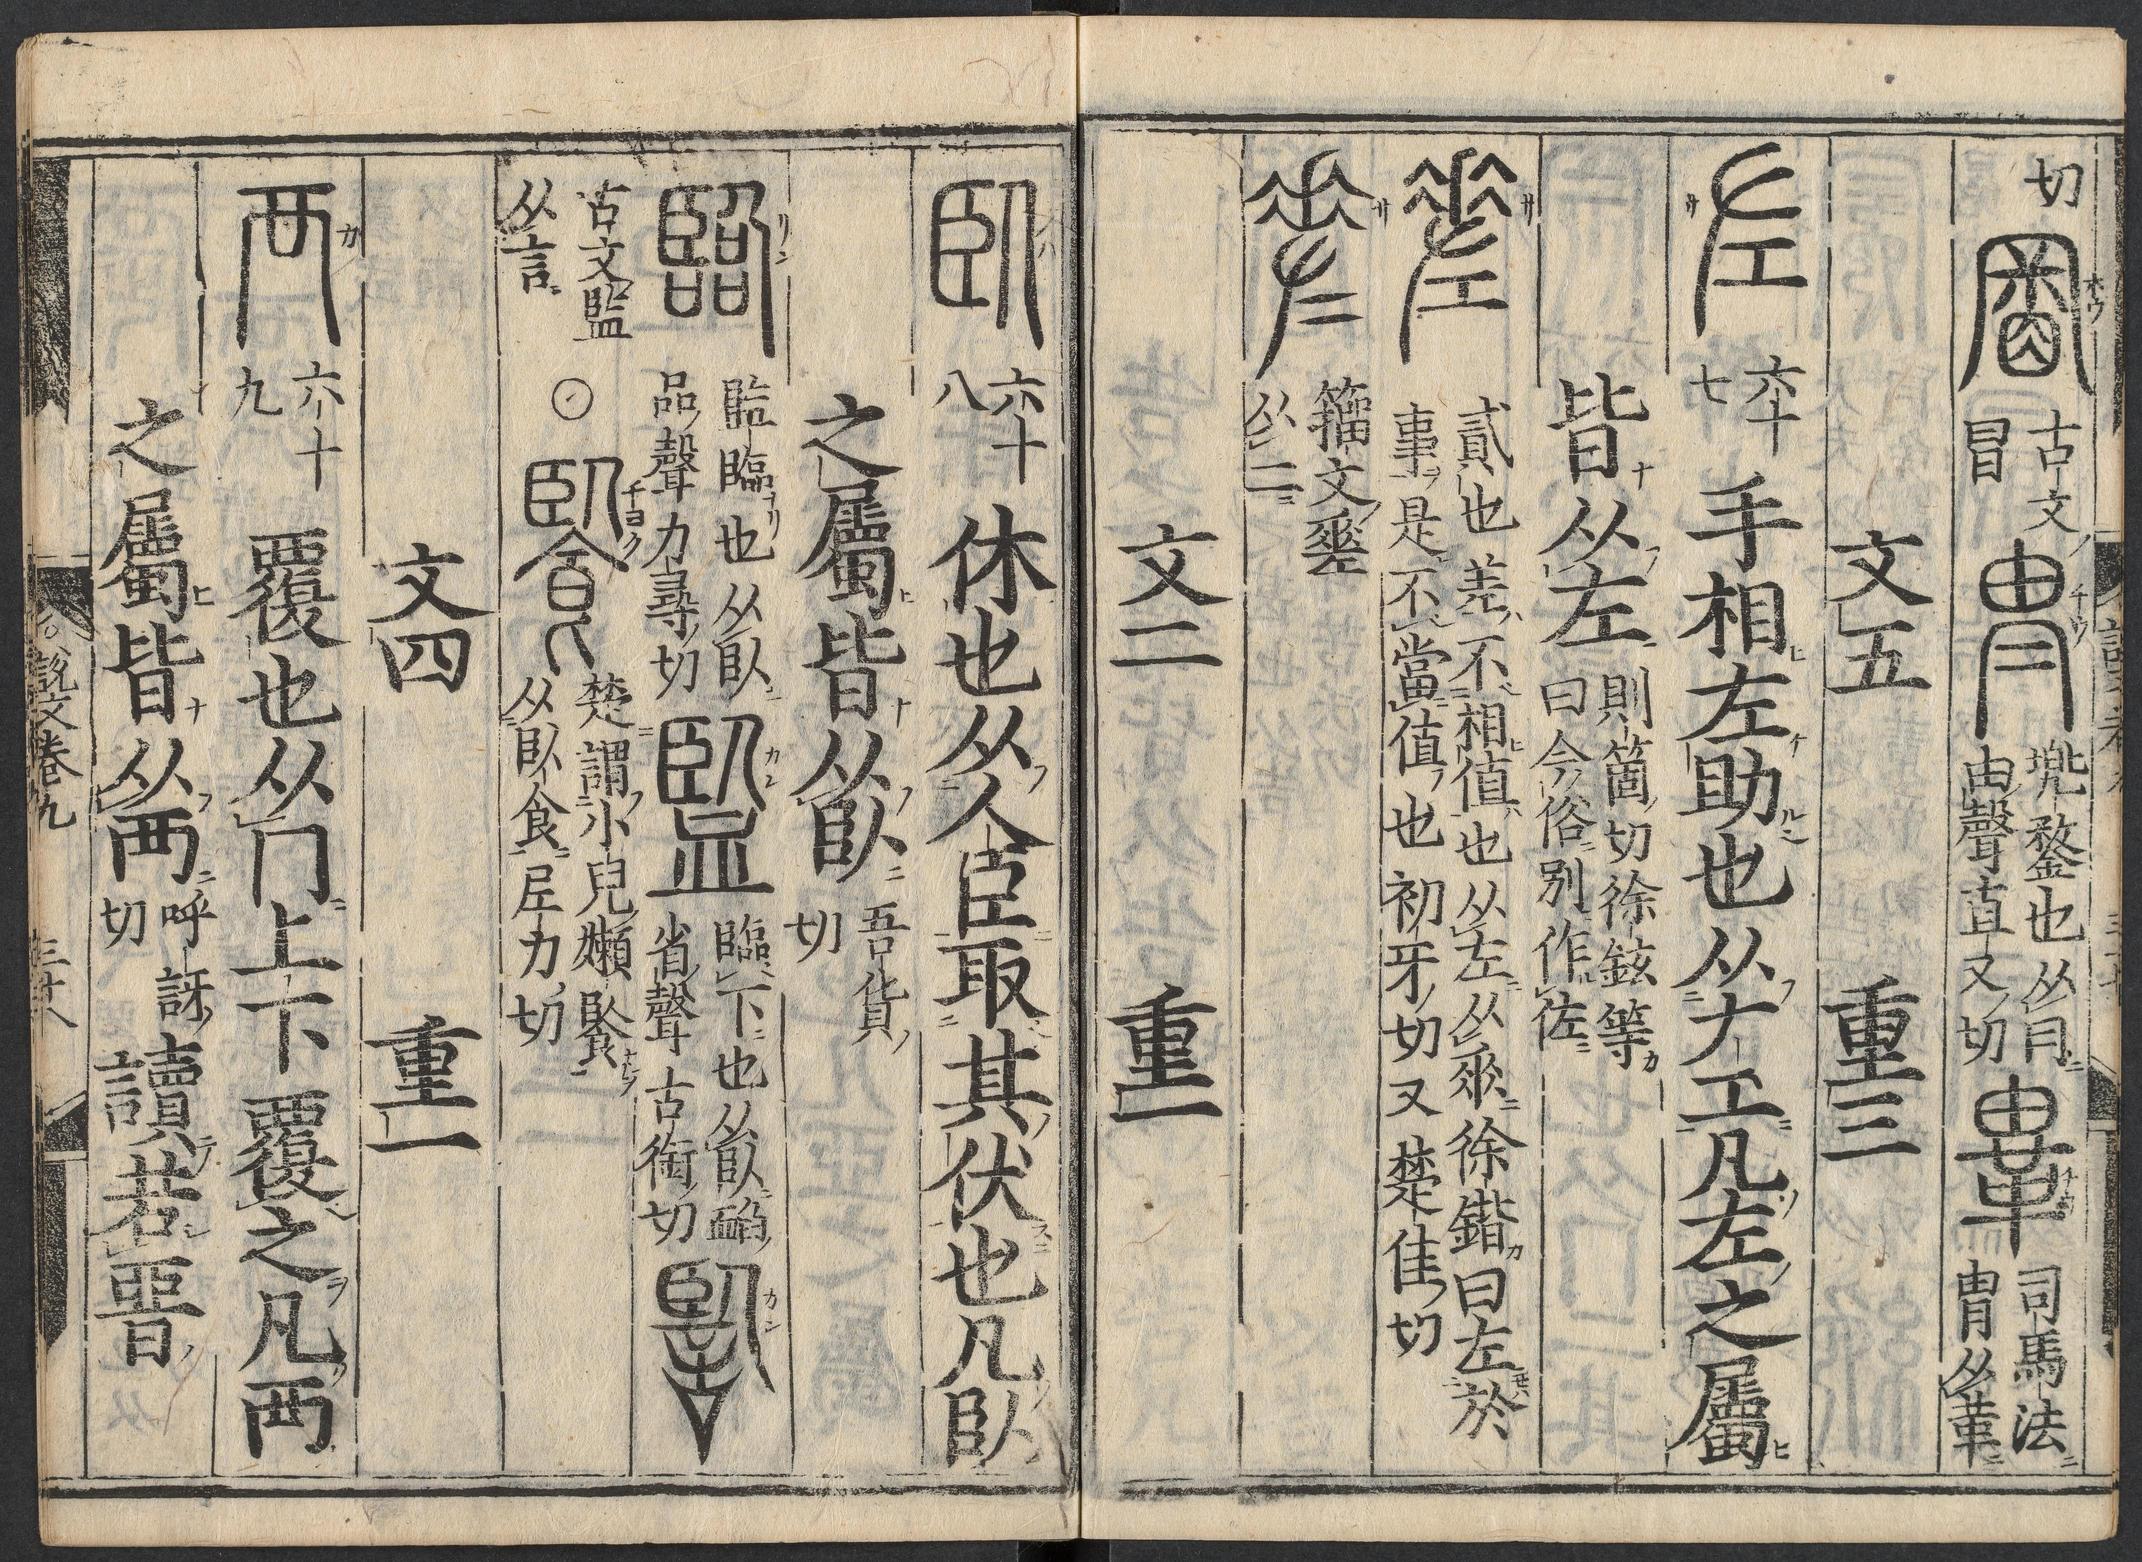 切 𡇒 古文冒 冑 兜鍪也从冃由聲直又切 𩊄 司馬法冑从革
文五 重三
左 六十七 手相左助也从𠂇工凡左之屬
皆从左 則箇切徐鉉等曰今俗別作佐
𢀩 貳也差不相值也从左从𠂹徐鍇曰左於事是不當值也初牙切又楚佳切
籀文𢀩从二
文二 重一
臥 六十八 休也从人臣取其伏也凡臥
之屬皆从臥 吾貨切
臨 監臨也从臥品聲力尋切 監 臨下也从臥䘓省聲古銜切
古文監从言 〇 楚謂小兒嬾䬥从臥食尼力切
文四 重一
襾 六十九 覆也从冂上下覆之凡襾
之屬皆从襾 呼訝切 讀若晋
說文卷九 三十八